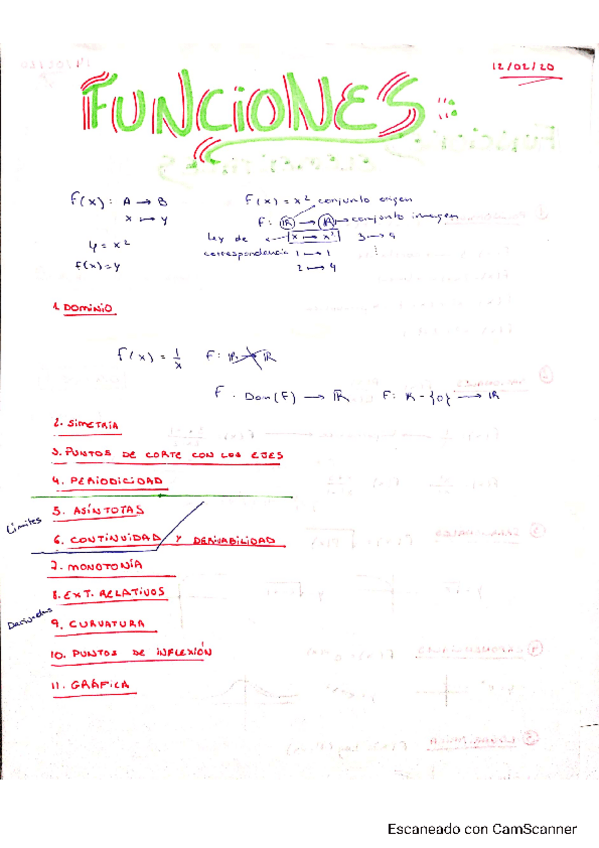 12/02/20
FUNCIONES:
F(x): A → B
x ↦ y
y = x²
f(x) = y
F(x) = x² conjunto origen
F: ℝ → ℝ → conjunto imagen
Ley de correspondencia
x ↦ x²
3 ↦ 9
1 ↦ 1
2 ↦ 4
1. DOMINIO
f(x) = 1/x F: ℝ → ℝ
F: Dom(F) → ℝ F: ℝ - {0} → ℝ
2. SIMETRÍA
3. PUNTOS DE CORTE CON LOS EJES
4. PERIODICIDAD
Límites
5. ASÍNTOTAS
6. CONTINUIDAD Y DERIVABILIDAD
7. MONOTONÍA
Derivadas
8. EXT. RELATIVOS
9. CURVATURA
10. PUNTOS DE INFLEXIÓN
11. GRÁFICA
Escaneado con CamScanner